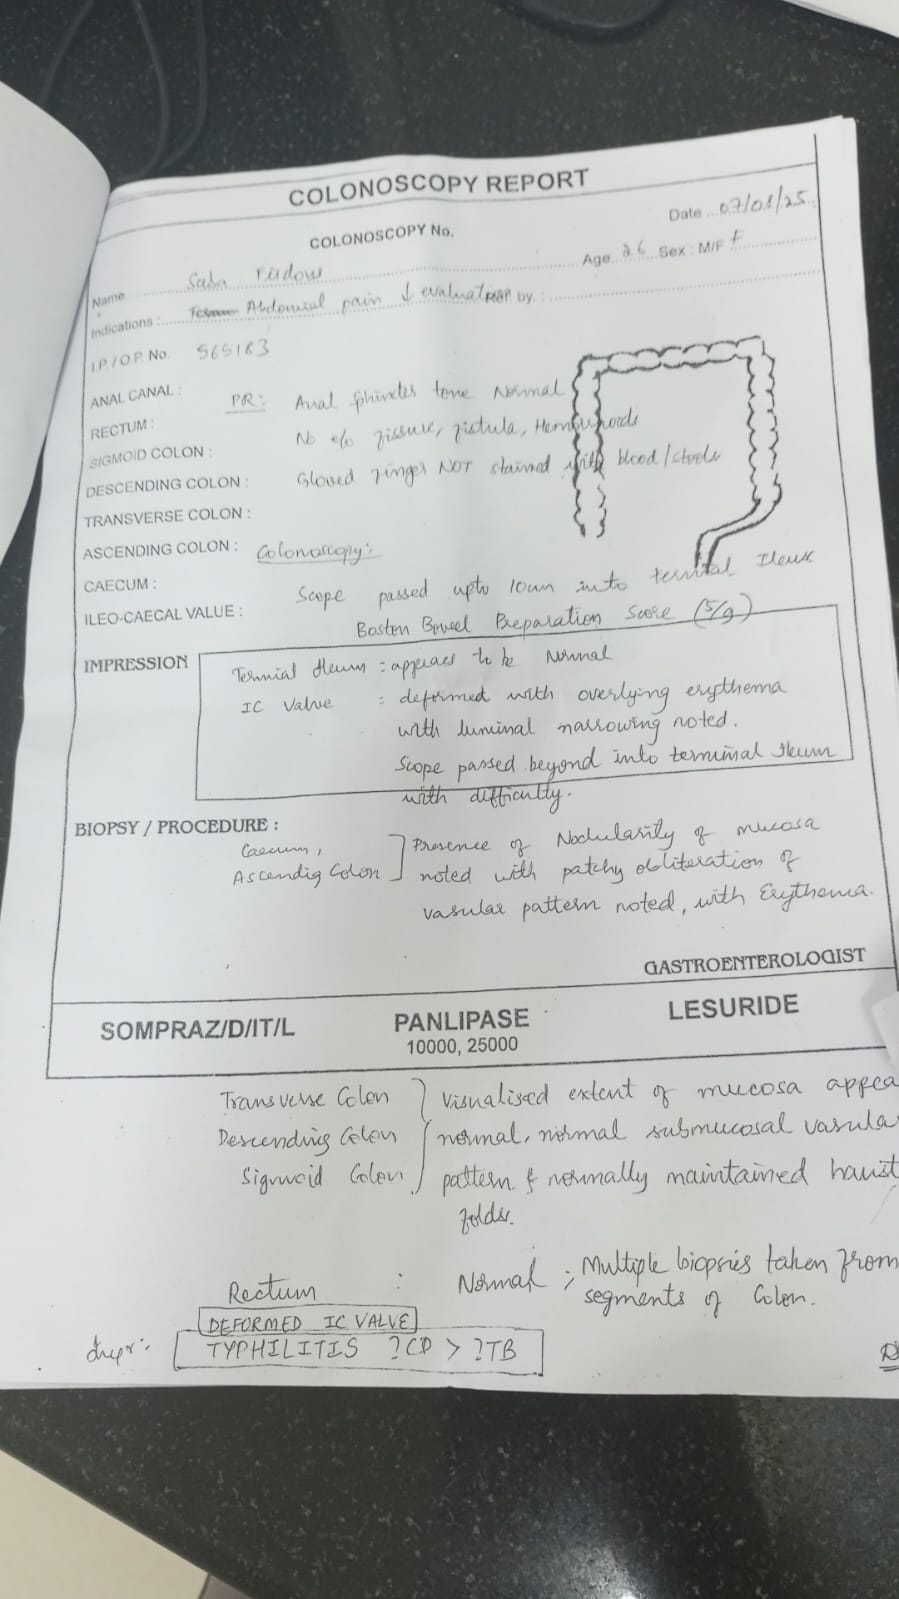 COLONOSCOPY REPORT
COLONOSCOPY No.
Date 07/08/25
Name Saba
Age 26 Sex : M/F F
Indications : Abdominal pain ↓ evaluation by :
I.P. / O.P. No. 565183
ANAL CANAL : PR: Anal sphincter tone Normal
RECTUM : No e/o fissure, fistula, Hemorrhoids
SIGMOID COLON :
DESCENDING COLON : Gloved finger NOT stained with blood/stools
TRANSVERSE COLON :
ASCENDING COLON : Colonoscopy:
CAECUM : Scope passed upto 10cm into terminal Ileum
ILEO-CAECAL VALUE : Boston Bowel Preparation Score (5/9)
IMPRESSION
Terminal Ileum : appears to be Normal
IC Valve : deformed with overlying erythema
with luminal narrowing noted.
Scope passed beyond into terminal Ileum
with difficulty.
BIOPSY / PROCEDURE :
Caecum, Presence of Nodularity of mucosa
Ascendig Colon noted with patchy obliteration of
vasular pattern noted, with Erythema.
GASTROENTEROLOGIST
SOMPRAZ/D/IT/L PANLIPASE LESURIDE
10000, 25000
Transverse Colon Visualised extent of mucosa appea
Descending Colon normal, normal submucosal vasula
Sigmoid Colon pattern & normally maintained haust
folds.
Rectum : Normal ; Multiple biopsies taken from
segments of Colon.
DEFORMED IC VALVE
Impr: TYPHILITIS ?CD > ?TB